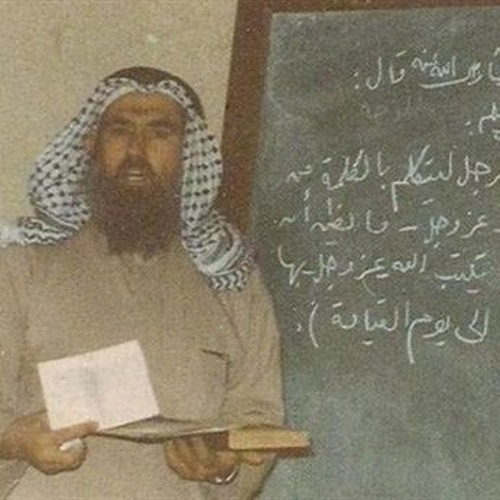 قال:
رجل ليتكلم بالكلمة من
عز وجل - ما يظن أن
يكتب الله عز وجل بها
إلى يوم القيامة ).